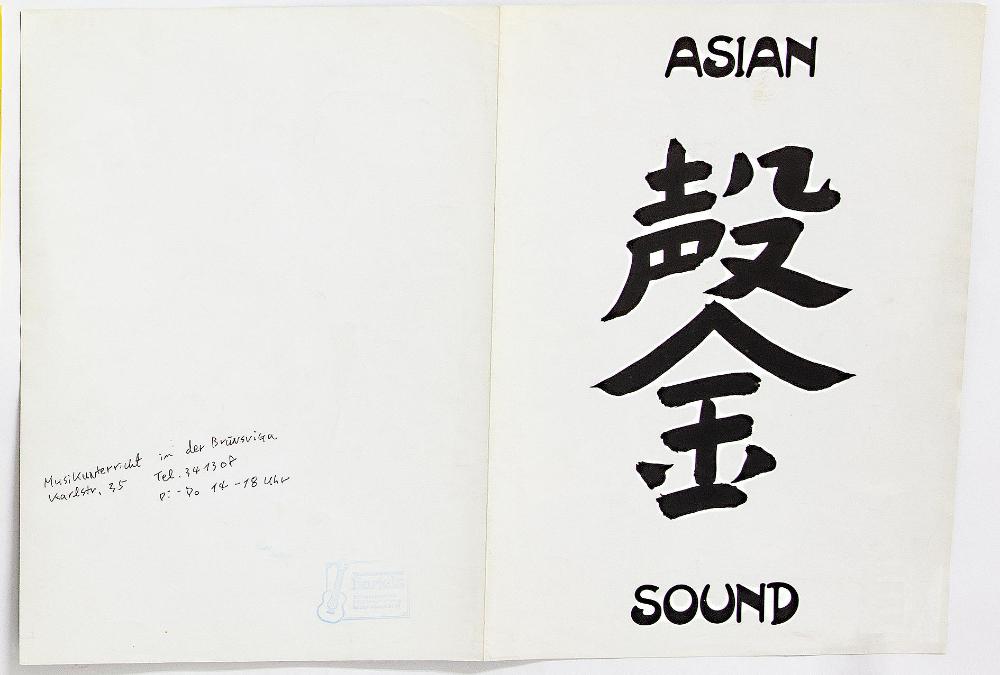 Musikunterricht in der Brunsviga
Karlstr. 35 Tel. 34 13 08
Di-Do 14-18 Uhr
ASIAN
SOUND